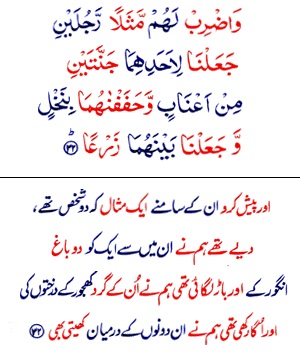 وَاضْرِبْ لَهُمْ مَّثَلًا رَّجُلَيْنِ
جَعَلْنَا لِاَحَدِهِمَا جَنَّتَيْنِ
مِنْ اَعْنَابٍ وَّحَفَفْنٰهُمَا بِنَخْلٍ
وَّ جَعَلْنَا بَيْنَهُمَا زَرْعًا ؕ﴿۳۲﴾
اور پیش کرو ان کے سامنے ایک مثال کہ دو شخص تھے،
دیے تھے ہم نے ان میں سے ایک کو دو باغ
انگور کے اور باڑ لگائی تھی ہم نے اُن کے گرد کھجور کے درختوں کی
اور اُگا رکھی تھی ہم نے ان دونوں کے درمیان کھیتی بھی ﴿۳۲﴾